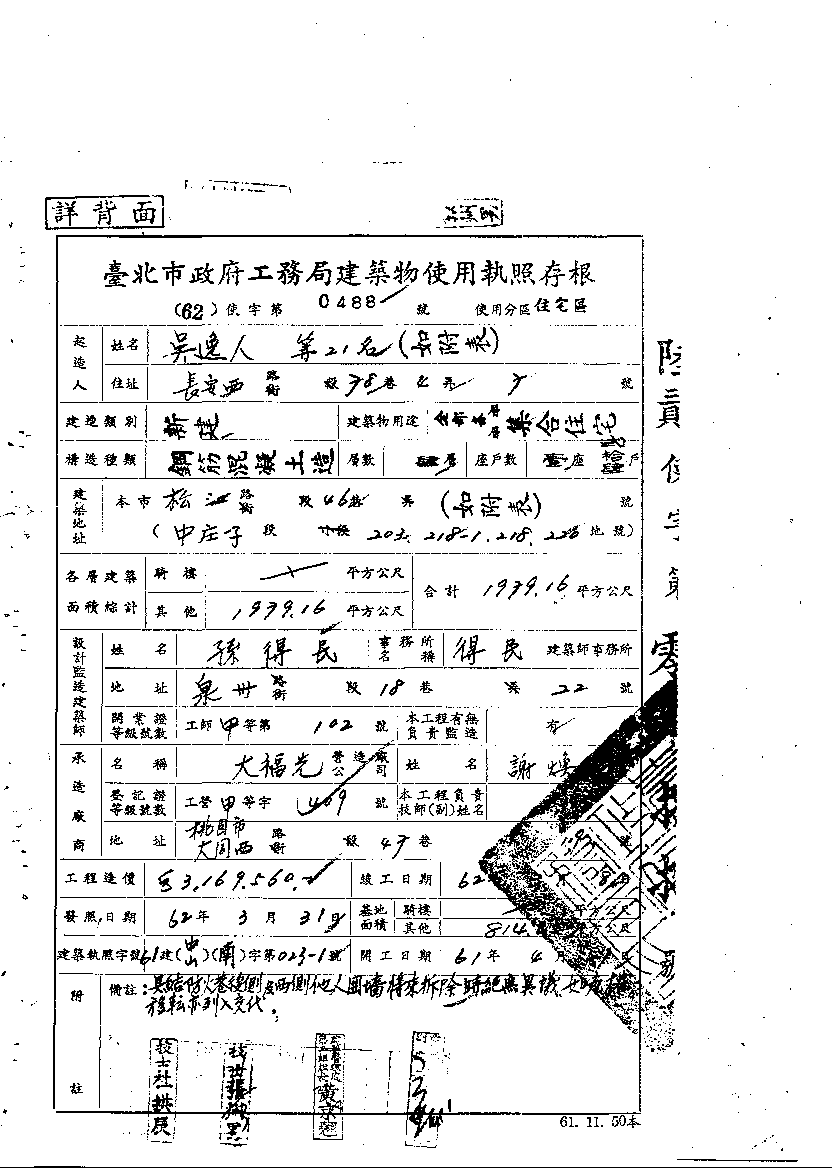 詳背面
臺北市政府工務局建築物使用執照存根
(62)使字第 0488 號 使用分區 住宅區
起造人 姓名 吳逸人 等21名(如附表)
住址 長安西 路街 段 38巷 4弄 7 號
建造類別 新建 建築物用途 集合住宅
構造種類 鋼筋混凝土造 層數 層 座戶數 座 戶
建築地址 本市 松江 路街 段 46巷 弄 (如附表) 號
(中庄子 段 218-1, 218, 地號)
各層建築面積綜計 騎樓 平方公尺 合計 1939.16 平方公尺
其他 1939.16 平方公尺
設計監造建築師 姓名 孫得民 事務所名稱 得民 建築師事務所
地址 泉州 路街 段 18 巷 弄 22 號
開業證等級號數 工師甲等第 102 號 本工程有無負責監造 有
承造廠商 名稱 大福光 營造廠公司 姓名 謝
登記證等級號數 工營甲等字 號 本工程負責技師(副)姓名
地址 桃園市大同西 路街 段 47 巷 號
工程造價 3,169,560 竣工日期 62
發照日期 62年 3月 31日 基地面積 騎樓 平方公尺
其他 814. 平方公尺
建築執照字號 61建(中山)(南)字第023-1號 開工日期 61年 4月
附註 備註:具結防火巷後側及兩側他人圍墻將來拆除時絕無異議,如
移転亦列入交代。
技士杜拱辰
黃京
61. 11. 50本